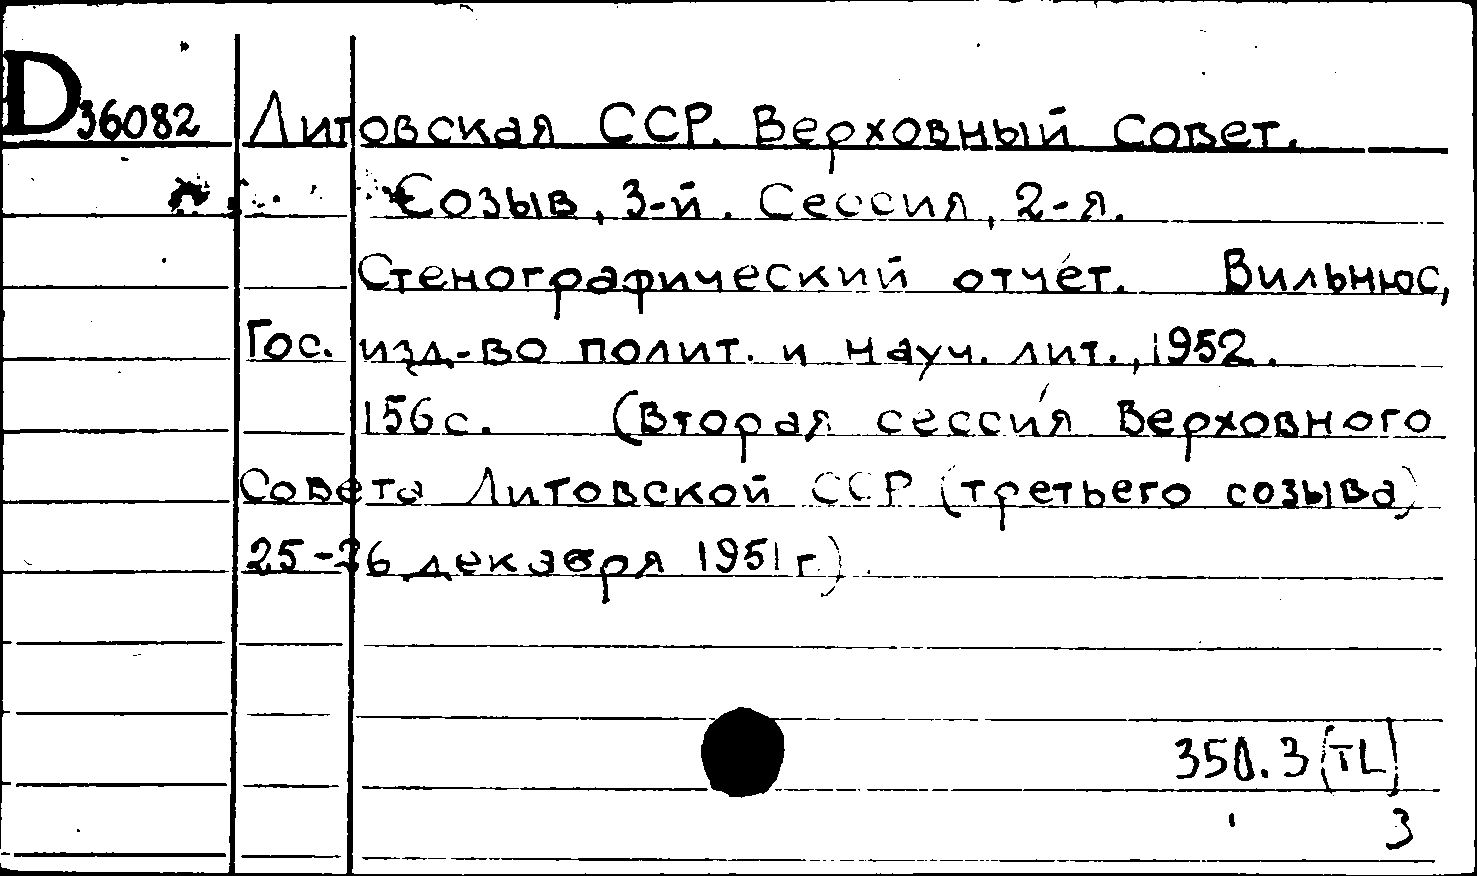 D36082 Литовская ССР. Верховный Совет.
Созыв, 3-й. Сессия, 2-я.
Стенографический отчёт. Вильнюс,
Гос. изд-во полит. и науч. лит., 1952.
156 с. (Вторая сессия Верховного
Совета Литовской ССР (третьего созыва)
25-26 декабря 1951 г.)
350.3 (TL)
3